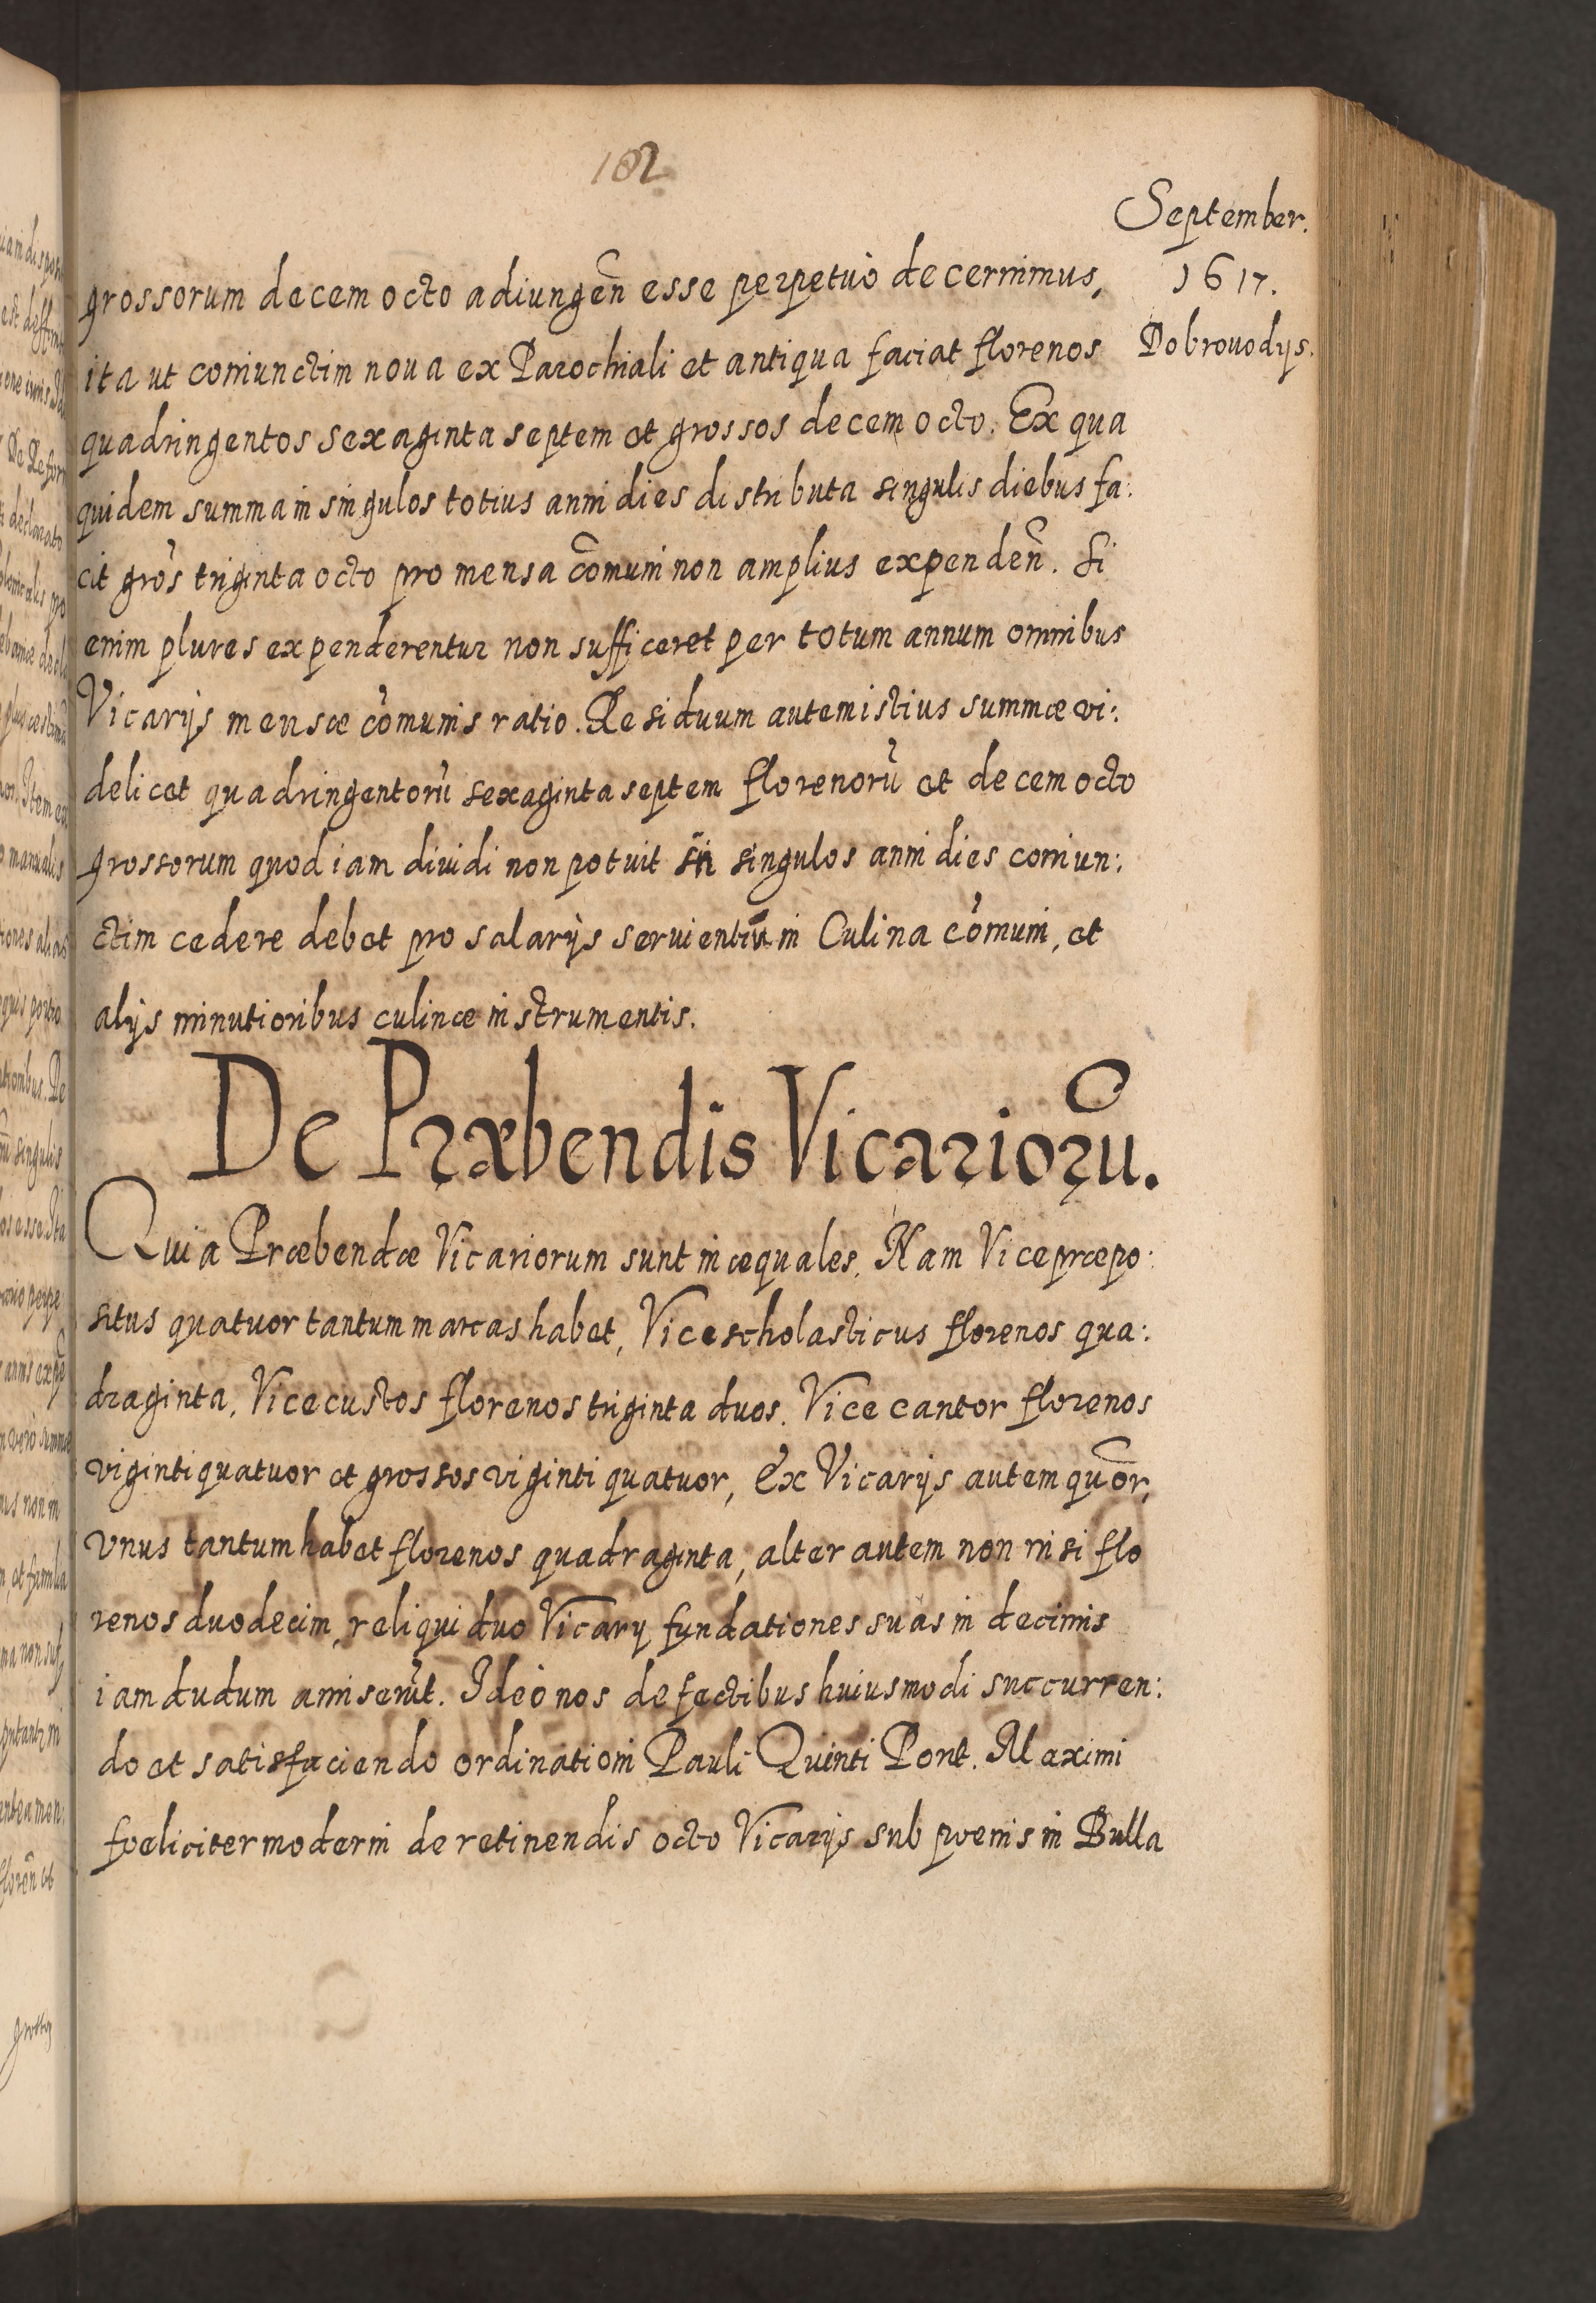 182
September.
1617.
Dobrouodys.
grossorum decem octo adiungen̄ esse perpetuò decernimus,
ita ut coniunctim noua ex Parochiali et antiqua faciat florenos
quadringentos sexaginta septem et grossos decem octo. Ex qua
quidem summa in singulos totius anni dies distributa singulis diebus fa:
cit gros̄ triginta octo pro mensa com̄uni non amplius expenden̄. Si
enim plures expenderentur non sufficeret per totum annum omnibus
Vicarijs mensæ com̄unis ratio. Residuum autem istius summæ vi:
delicet quadringentorū sexaginta septem florenorū et decem octo
grossorum quod iam diuidi non potuit in singulos anni dies coniun:
ctim cedere debet pro salarijs seruientiū in Culina com̄uni, et
alijs minutioribus culinæ instrumentis.
De Præbendis Vicariorū.
Quia Præbendæ Vicariorum sunt inæquales. Nam Vicepræpo:
situs quatuor tantum marcas habet, Vicescholasticus florenos qua:
draginta. Vicecustos florenos triginta duos. Vicecantor florenos
viginti quatuor et grossos viginti quatuor, Ex Vicarijs autem quōr,
vnus tantum habet florenos quadraginta, alter autem non nisi flo
renos duodecim, reliqui duo Vicarij fundationes suas in decimis
iamdudum amiserūt. Ideò nos defectibus huiusmodi succurren:
do et satisfaciendo ordinationi Pauli Quinti Pont. Maximi
fœliciter moderni de retinendis octo Vicarijs sub pœnis in Bulla